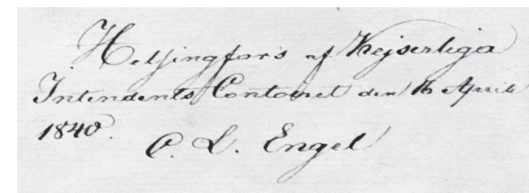 Helsingfors af Kejserliga
Intendents Contoiret den 16 April
1840. C. L. Engel